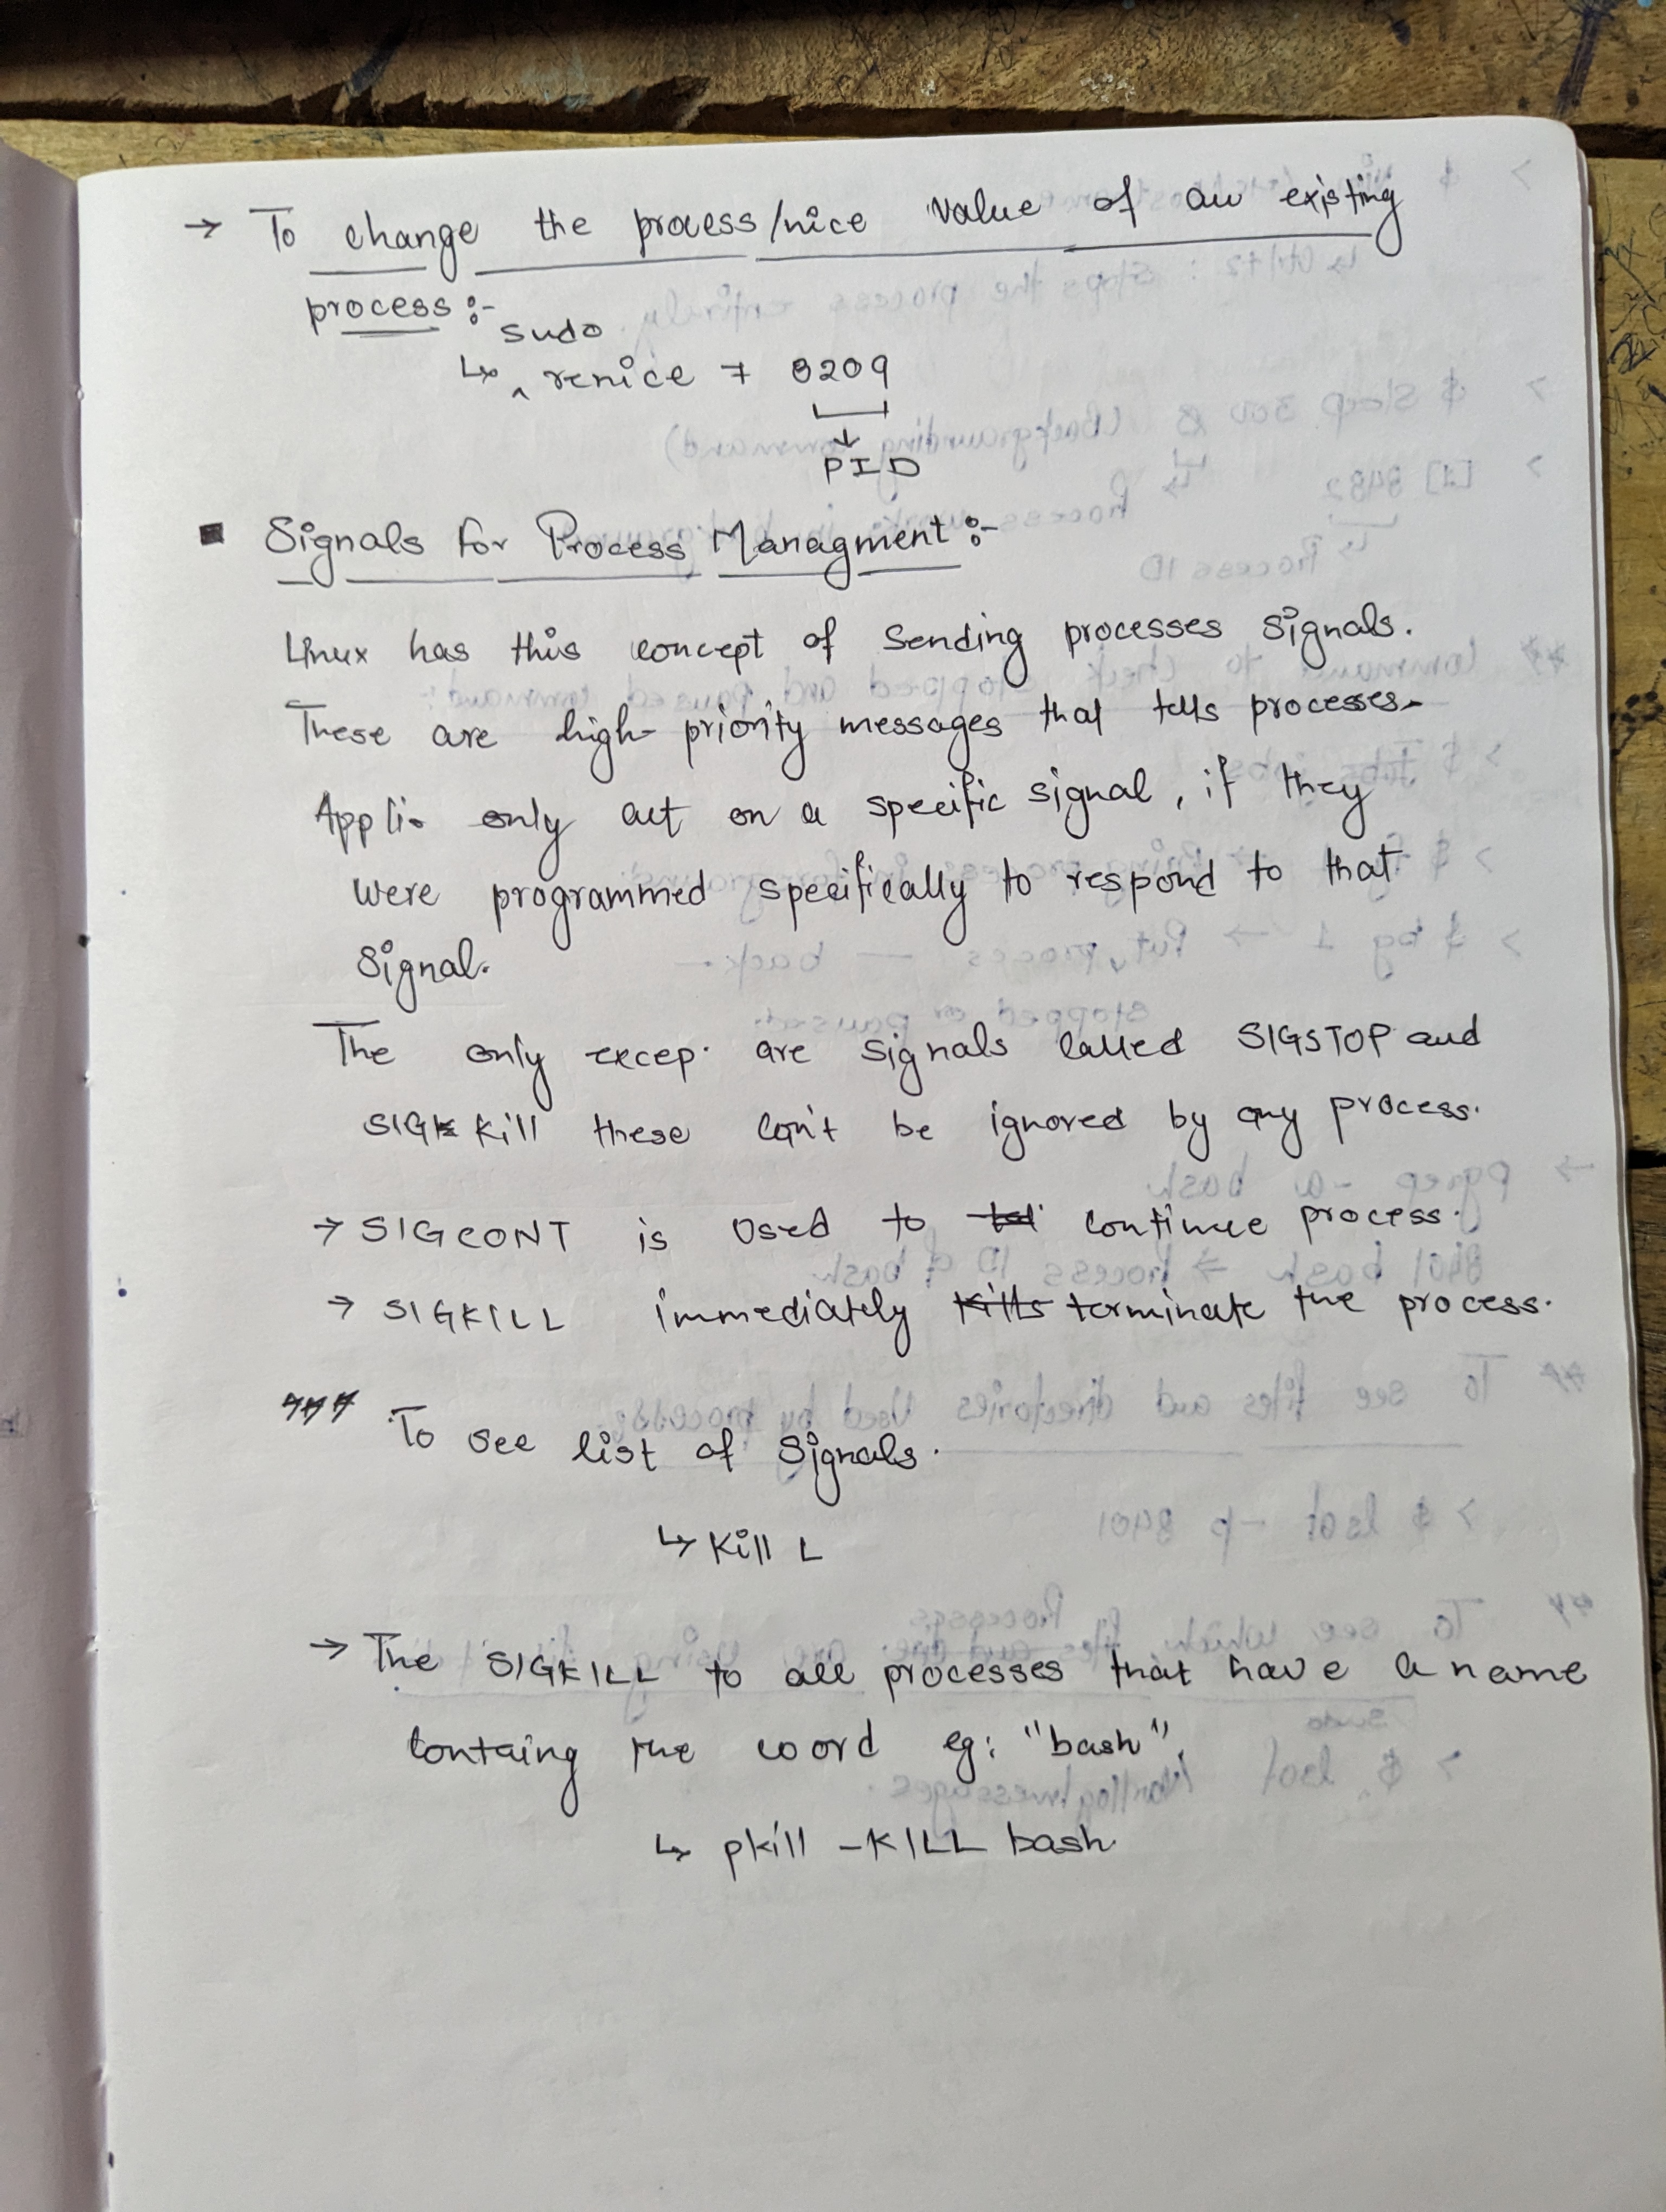 → To change the process/nice value of an existing
process :-
sudo
↳ ^ renice 7 8209
↓
PID
■ Signals for Process Managment :-
Linux has this concept of sending processes signals.
These are high-priority messages that tells processes.
Appli. only act on a specific signal, if they
were programmed specifically to respond to that
signal.
The only excep. are signals called SIGSTOP and
SIGKill these can't be ignored by any process.
→ SIGCONT is used to continue process.
→ SIGKILL immediately kills terminate the process.
*** To see list of signals.
↳ Kill L
→ The SIGKILL to all processes that have a name
containg the word eg: "bash".
↳ pkill -KILL bash.